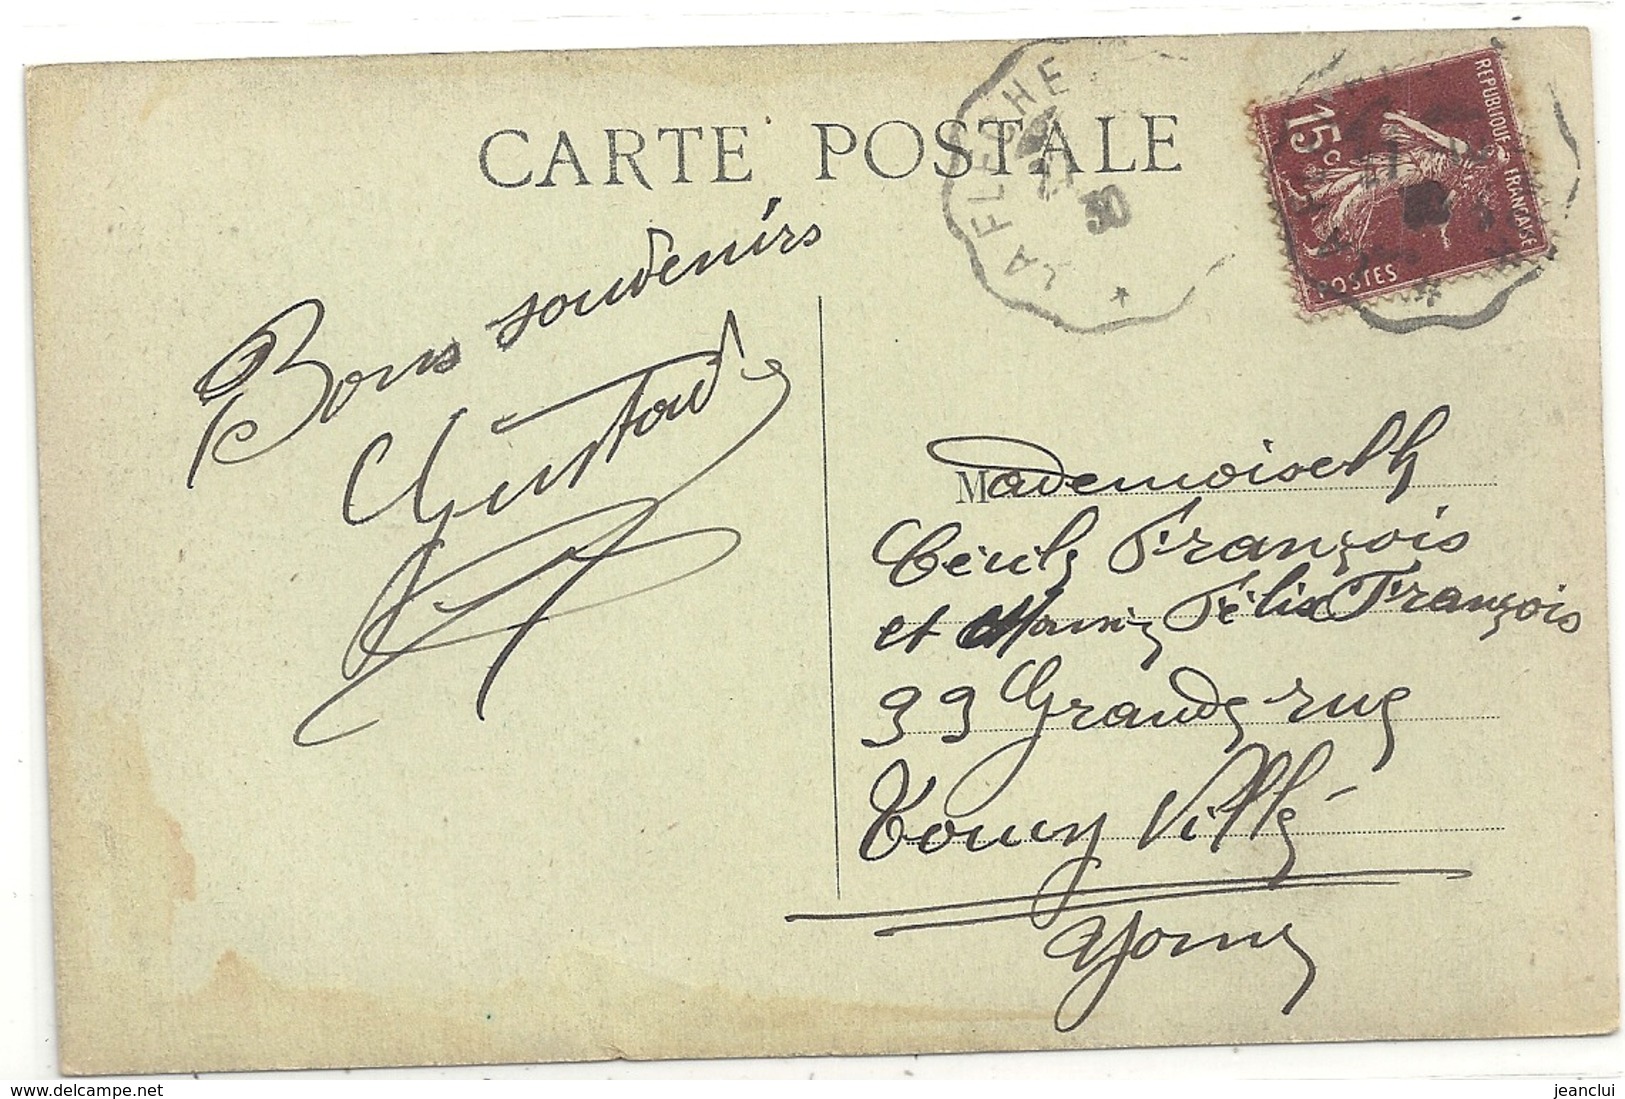 CARTE POSTALE
LA FLECHE
30
15c
REPUBLIQUE FRANCAISE
POSTES
Bons souvenirs
Mademoiselle
Cécile François
et Félix François
33 Grande rue
Toucy Ville
Yonne
www.delcampe.net
jeanclui